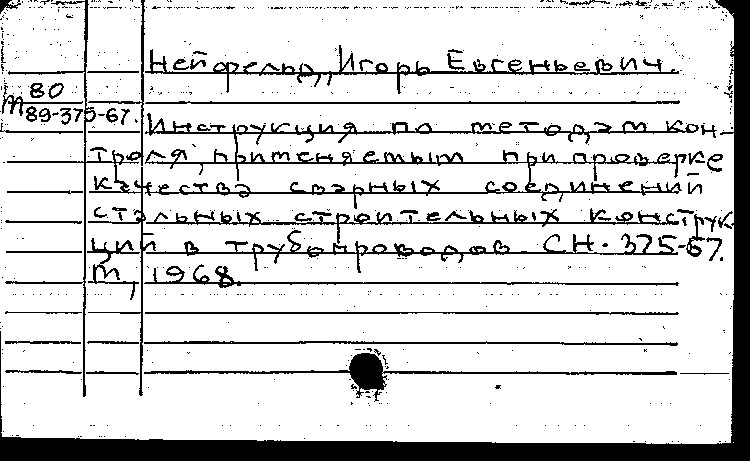 Нейфельд, Игорь Евгеньевич.
80
М89-375-67.
Инструкция по методам кон-
троля, применяемым при проверке
качества сварных соединений
стальных строительных конструк-
ций в трубопроводов СН. 375-67.
М, 1968.